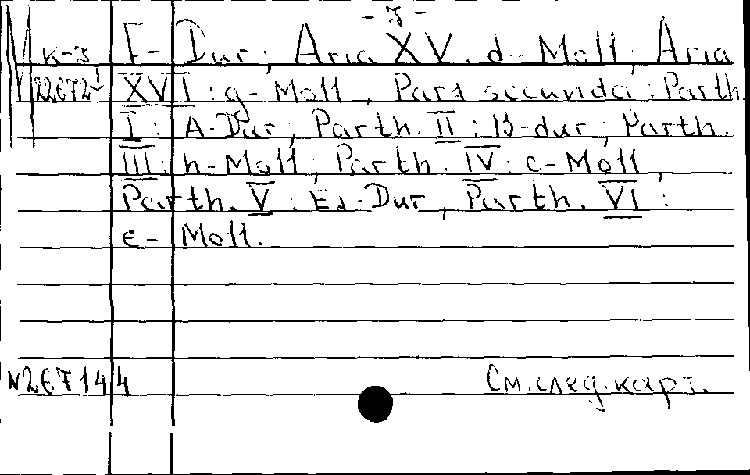 - 3 -
М к-3 F-Dur; Aria XV. d-Moll; Aria
XVI: g-Moll, Pars secunda: Parth.
I: A-Dur; Parth. II: B-dur; Parth.
III: h-Moll; Parth. IV: c-Moll,
Parth. V: Es-Dur, Parth. VI:
e-Moll.
N267144 См. след. карт.